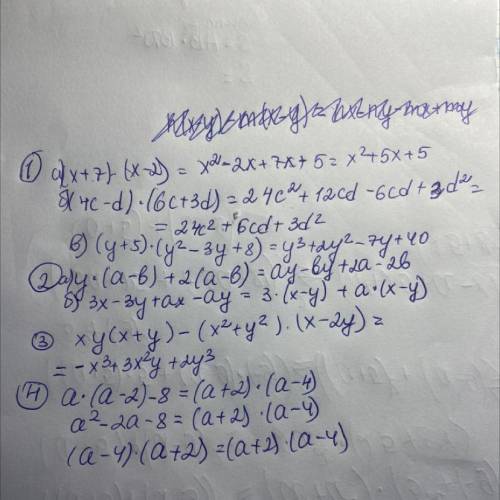 ① a)(x+7)·(x-2) = x²-2x+7x+5 = x²+5x+5
б)(4c-d)·(6c+3d) = 24c²+12cd-6cd+3d² =
= 24c²+6cd+3d²
в) (y+5)·(y²-3y+8) = y³+2y²-7y+40
② a) y·(a-b)+2(a-b) = ay-by+2a-2b
б) 3x-3y+ax-ay = 3·(x-y)+a·(x-y)
③ xy(x+y)-(x²+y²)·(x-2y) =
= -x³+3x²y+2y³
④ a·(a-2)-8 = (a+2)·(a-4)
a²-2a-8 = (a+2)·(a-4)
(a-4)·(a+2) = (a+2)·(a-4)